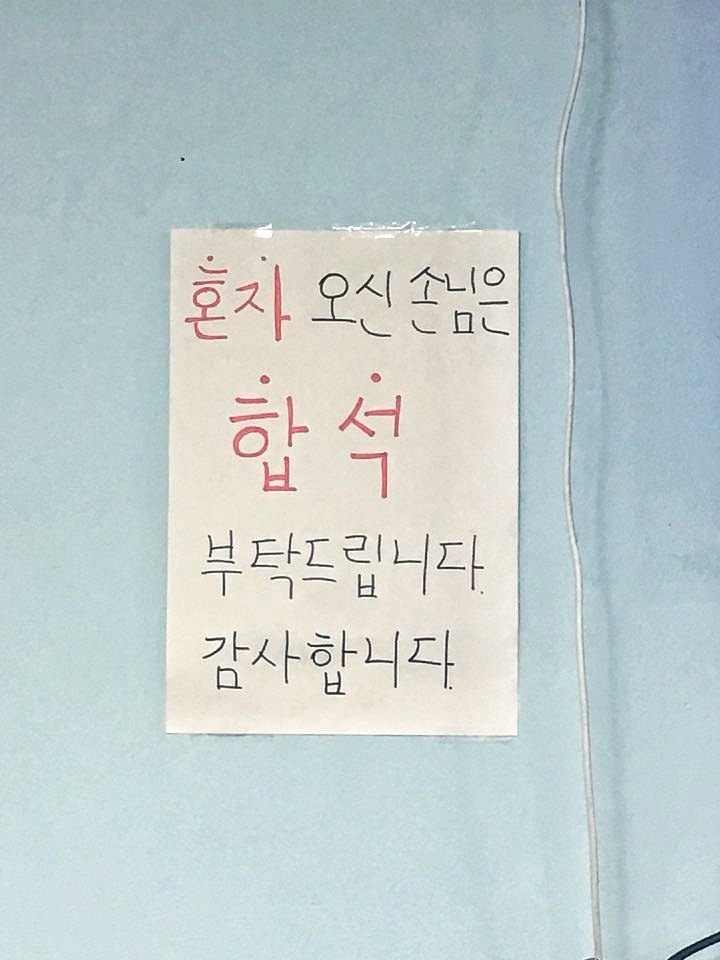 혼자 오신 손님은
합석
부탁드립니다.
감사합니다.